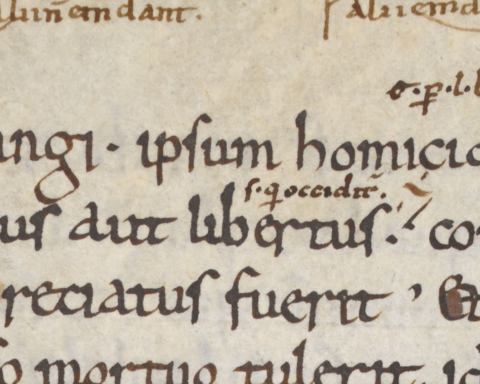 emendant. aliiemd
angi. ipsum homicid
s. q occidit.
us aut libertus. co
reciatus fuerit, Et
mortuo tulerit